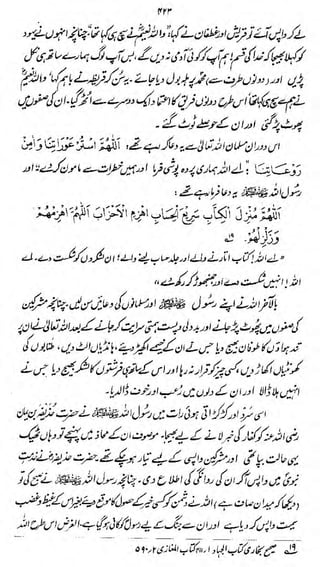 ۴۲۳
لے کر واپس آئے تو قریش اور غطفان نے کہا: "واللہ نعیمؓ نے سچ ہی کہا تھا" چنانچہ انہوں نے یہود
کو کہلا بھیجا کہ خدا کی قسم! ہم آپ کو کوئی آدمی نہ دیں گے، بس آپ لوگ ہمارے ساتھ ہی نکل
پڑیں اور (دونوں طرف سے) محمد پر ہلہ بول دیا جائے۔ یہ سن کر قریظہ نے باہم کہا "واللہ نعیمؓ
نے تم سے سچ ہی کہا تھا" اس طرح دونوں فریق کا اعتماد ایک دوسرے سے اُٹھ گیا۔ ان کی صفوں میں
پھوٹ پڑ گئی اور ان کے حوصلے ٹوٹ گئے۔
اس دوران مسلمان اللہ تعالیٰ سے یہ دعا کر رہے تھے، اَللّٰهُمَّ اسْتُرْ عَوْرَاتِنَا وَآمِنْ
رَوْعَاتِنَا "اے اللہ ہماری پردہ پوشی فرما اور ہمیں خطرات سے مامون کر دے" اور
رسول اللہ ﷺ یہ دعا فرما رہے تھے:
اَللّٰهُمَّ مُنْزِلَ الْكِتَابِ سَرِيْعَ الْحِسَابِ اهْزِمِ الْاَحْزَابَ اَللّٰهُمَّ اهْزِمْهُمْ
وَزَلْزِلْهُمْ۔ ۱۹
"اے اللہ! کتاب اتارنے والے اور جلد حساب لینے والے! ان لشکروں کو شکست دے۔ اے
اللہ! انہیں شکست دے اور جھنجھوڑ کر رکھ دے،
بالآخر اللہ نے اپنے رسول ﷺ اور مسلمانوں کی دعائیں سن لیں۔ چنانچہ مشرکین
کی صفوں میں پھوٹ پڑ جانے اور بددلی و پست ہمتی سرایت کر جانے کے بعد اللہ تعالیٰ نے ان پر
تند ہواؤں کا طوفان بھیج دیا جس نے ان کے خیمے اکھیڑ دیئے، ہانڈیاں الٹ دیں، طنابوں کی
کھونٹیاں اکھاڑ دیں، کسی چیز کو قرار نہ رہا اور اس کے ساتھ ہی فرشتوں کا لشکر بھیج دیا جس نے
انہیں ہلا ڈالا اور ان کے دلوں میں رُعب اور خوف ڈال دیا۔
اسی سرد اور کڑکڑاتی ہوئی رات میں رسول اللہ ﷺ نے حضرت حذیفہ بن یمان
رضی اللہ عنہ کو کفار کی خبر لانے کے لیے بھیجا۔ موصوف ان کے محاذ میں پہنچے تو وہاں ٹھیک
یہی حالت بپا تھی اور مشرکین واپسی کے لیے تیار ہو چکے تھے۔ حضرت حذیفہ نے خدمت
نبویؐ میں واپس آ کر ان کی روانگی کی اطلاع دی۔ چنانچہ رسول اللہ ﷺ نے صبح کی تو
(دیکھا کہ میدان صاف ہے) اللہ نے دشمن کو کسی خیر کے حصول کا موقع دیئے بغیر اس کے غیظ و غضب
سمیت واپس کر دیا ہے اور ان سے جنگ کے لیے رسول کو کافی ہو گیا ہے۔ الغرض اس طرح اللہ
۱۹ صحیح بخاری کتاب الجہاد ۱/ کتاب المغازی ۲/ ۵۹۰